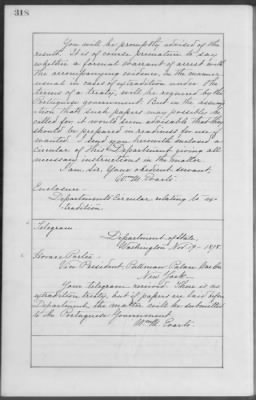 318
You will be promptly advised of the
result. It is of course premature to say
whether a formal warrant of arrest with
the accompanying evidence, in the manner
usual in cases of extradition under the
terms of a treaty, will be required by the
Portuguese government. But in the assump
tion that such papers may possibly be
called for it would seem advisable that they
should be prepared in readiness for use if
wanted. I send you herewith enclosed a
circular of this Department giving all
necessary instructions in the matter.
I am Sir, Your obedient servant,
Wm M. Evarts.
Enclosure.
Department's Circular relating to ex-
tradition.
Telegram
Department of State,
Washington Nov. 9- 1878.
Horace Porter.
Vice President Pullman Palace Car Co.
New York.
Your telegram received. There is no
extradition treaty, but if papers are laid before
Department the matter will be submitted
to the Portuguese Government.
Wm M. Evarts.